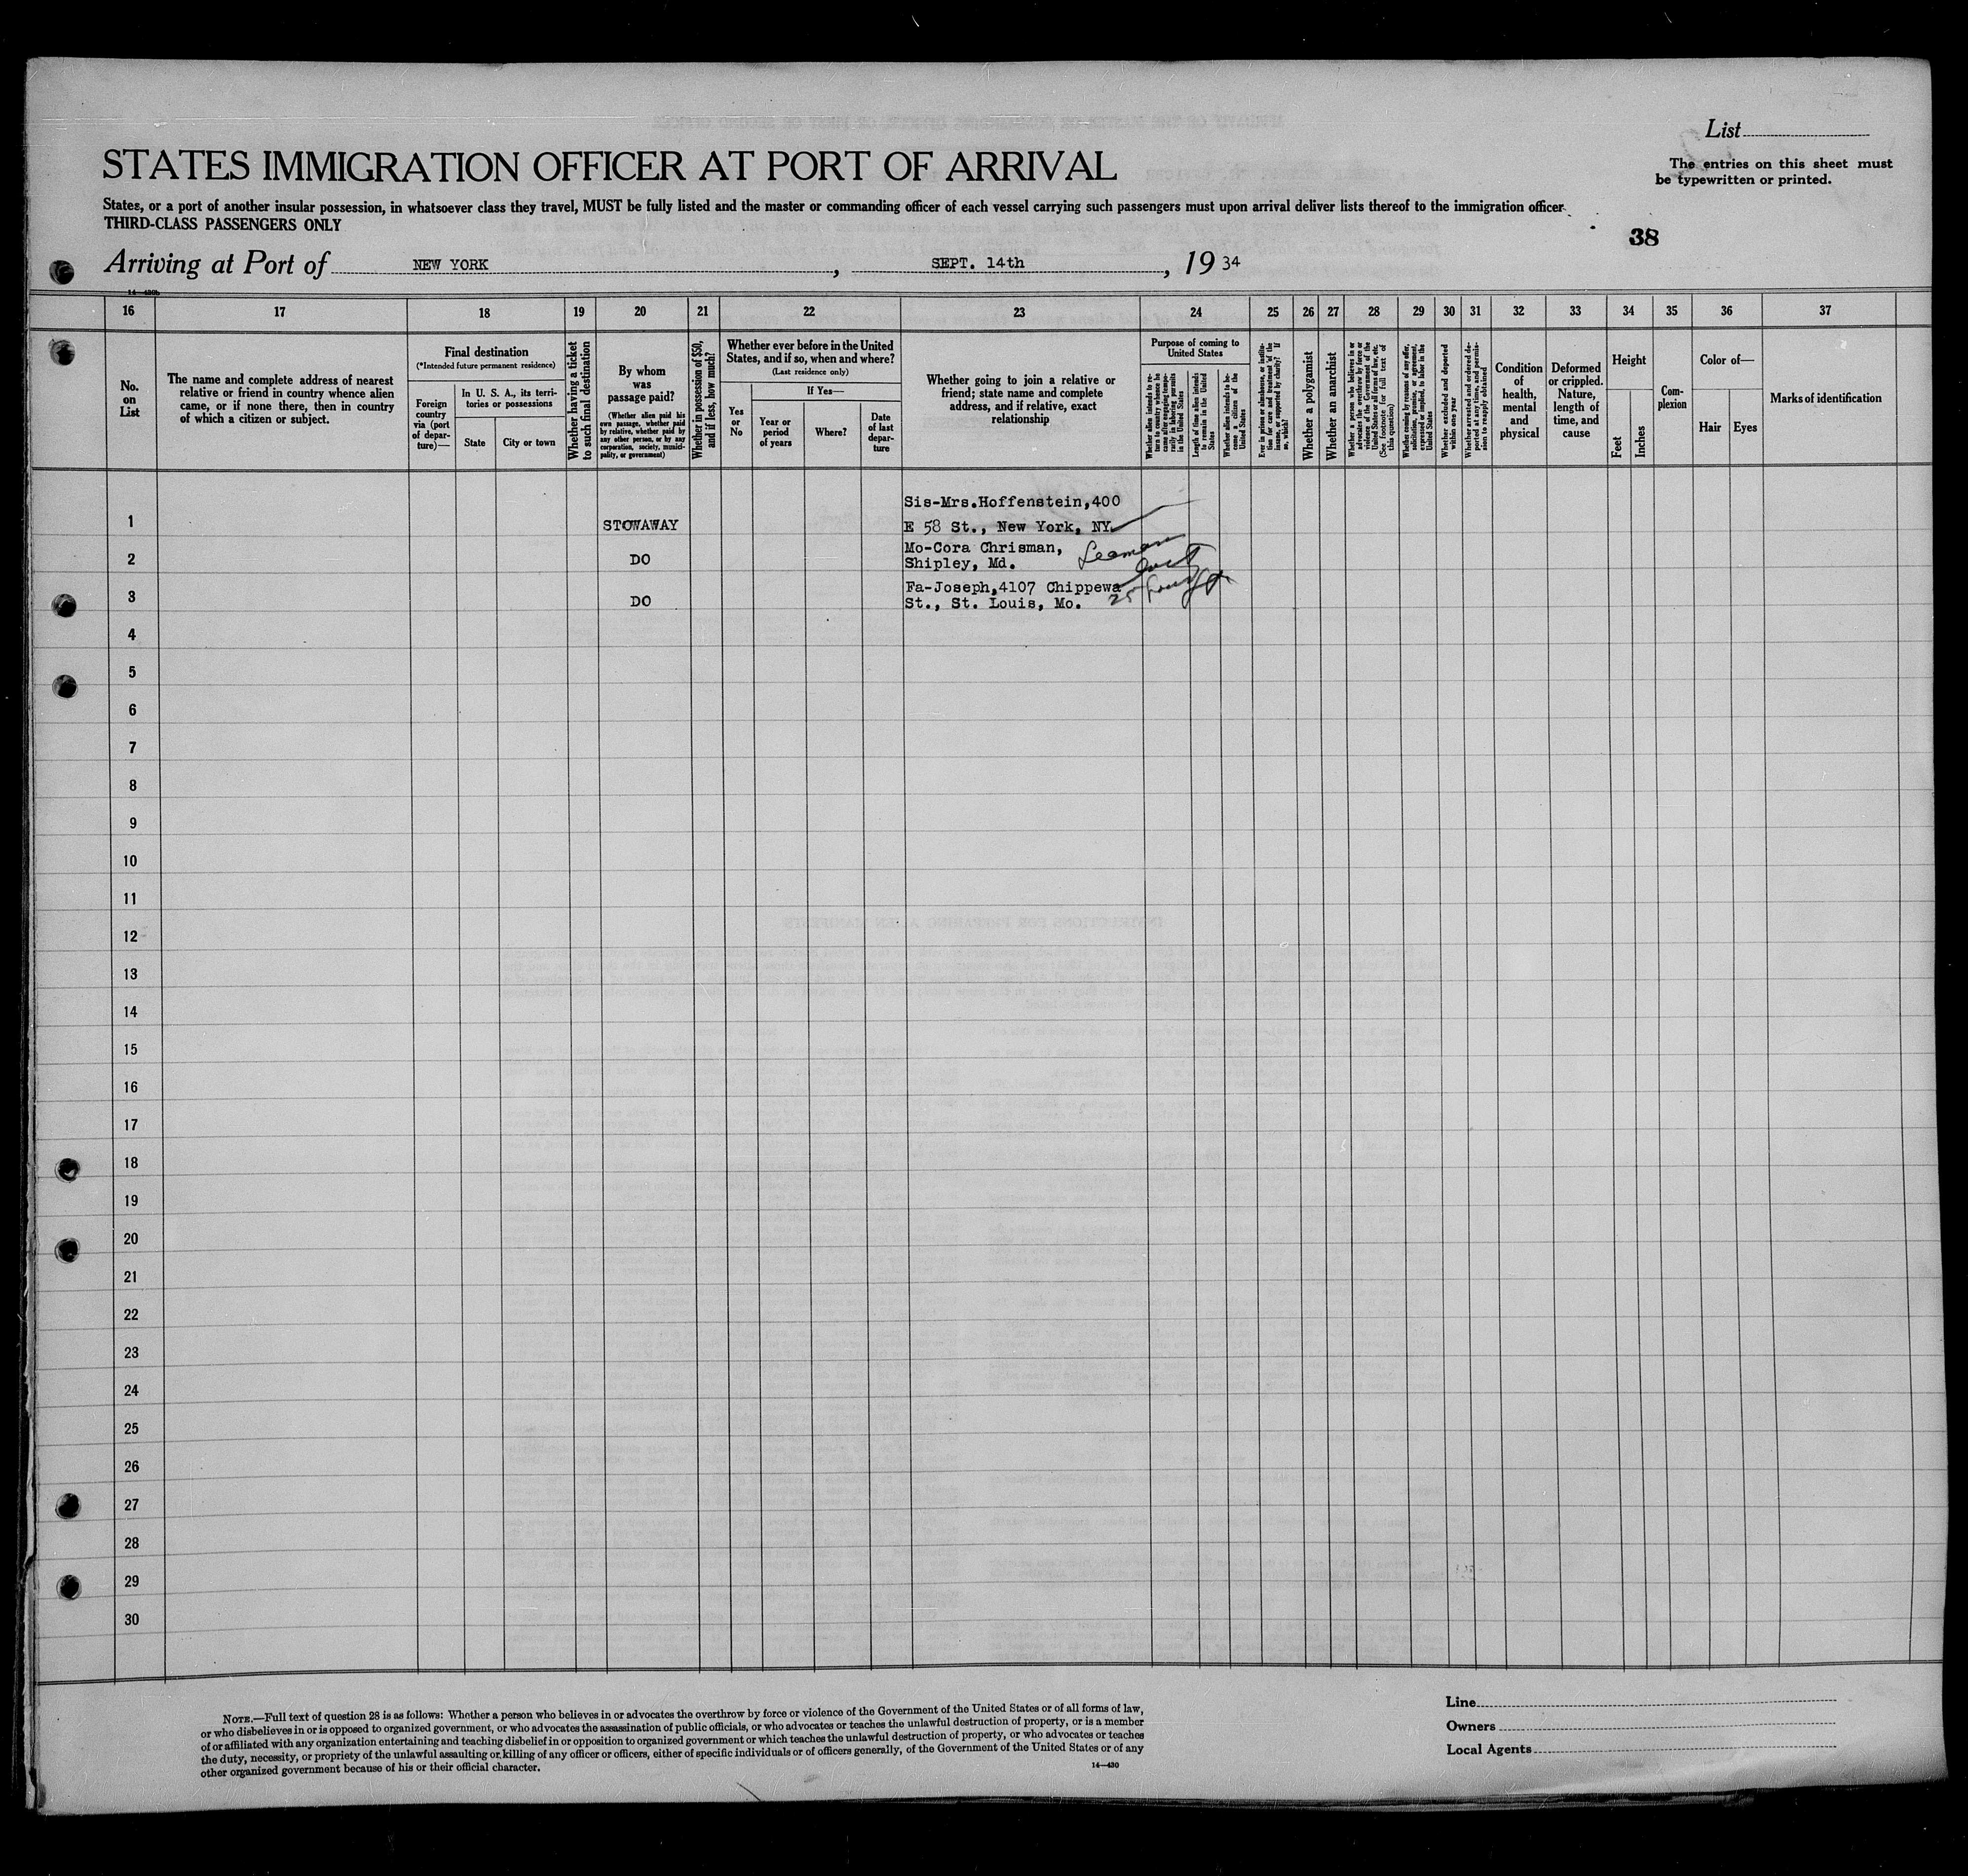 List
STATES IMMIGRATION OFFICER AT PORT OF ARRIVAL
The entries on this sheet must
be typewritten or printed.
States, or a port of another insular possession, in whatsoever class they travel, MUST be fully listed and the master or commanding officer of each vessel carrying such passengers must upon arrival deliver lists thereof to the immigration officer
THIRD-CLASS PASSENGERS ONLY
38
Arriving at Port of NEW YORK, SEPT. 14th, 19 34
14-430b
16 17 18 19 20 21 22 23 24 25 26 27 28 29 30 31 32 33 34 35 36 37
No.
on
List
The name and complete address of nearest
relative or friend in country whence alien
came, or if none there, then in country
of which a citizen or subject.
Final destination
(*Intended future permanent residence)
Foreign
country
via (port
of depar-
ture)—
In U. S. A., its terri-
tories or possessions
State
City or town
Whether having a ticket
to such final destination
By whom
was
passage paid?
(Whether alien paid his
own passage, whether paid
by relative, whether paid by
any other person, or by any
corporation, society, munici-
pality, or government)
Whether in possession of $50,
and if less, how much?
Whether ever before in the United
States, and if so, when and where?
(Last residence only)
Yes
or
No
If Yes—
Year or
period
of years
Where?
Date
of last
depar-
ture
Whether going to join a relative or
friend; state name and complete
address, and if relative, exact
relationship
Purpose of coming to
United States
Whether alien intends to re-
turn to country whence he
came after engaging tempo-
rarily in laboring pursuits
in the United States
Length of time alien intends
to remain in the United
States
Whether alien intends to be-
come a citizen of the
United States
Ever in prison or almshouse, or institu-
tion for care and treatment of the
insane, or supported by charity? If
so, which?
Whether a polygamist
Whether an anarchist
Whether a person who believes in or
advocates the overthrow by force or
violence of the Government of the
United States or all forms of law, etc.
(See footnote for full text of
this question)
Whether coming by reasons of any offer,
solicitation, promise, or agreement,
expressed or implied, to labor in the
United States
Whether excluded and deported
within one year
Whether arrested and ordered de-
ported at any time, and permis-
sion to reapply obtained
Condition
of
health,
mental
and
physical
Deformed
or crippled.
Nature,
length of
time, and
cause
Height
Feet
Inches
Com-
plexion
Color of—
Hair
Eyes
Marks of identification
Sis-Mrs.Hoffenstein,400
1 STOWAWAY E 58 St., New York, NY
Mo-Cora Chrisman, Seaman
2 DO Shipley, Md.
Fa-Joseph,4107 Chippewa
3 DO St., St. Louis, Mo.
4
5
6
7
8
9
10
11
12
13
14
15
16
17
18
19
20
21
22
23
24
25
26
27
28
29
30
NOTE.—Full text of question 28 is as follows: Whether a person who believes in or advocates the overthrow by force or violence of the Government of the United States or of all forms of law,
or who disbelieves in or is opposed to organized government, or who advocates the assassination of public officials, or who advocates or teaches the unlawful destruction of property, or is a member
of or affiliated with any organization entertaining and teaching disbelief in or opposition to organized government or which teaches the unlawful destruction of property, or who advocates or teaches
the duty, necessity, or propriety of the unlawful assaulting or killing of any officer or officers, either of specific individuals or of officers generally, of the Government of the United States or of any
other organized government because of his or their official character.
14—430
Line
Owners
Local Agents